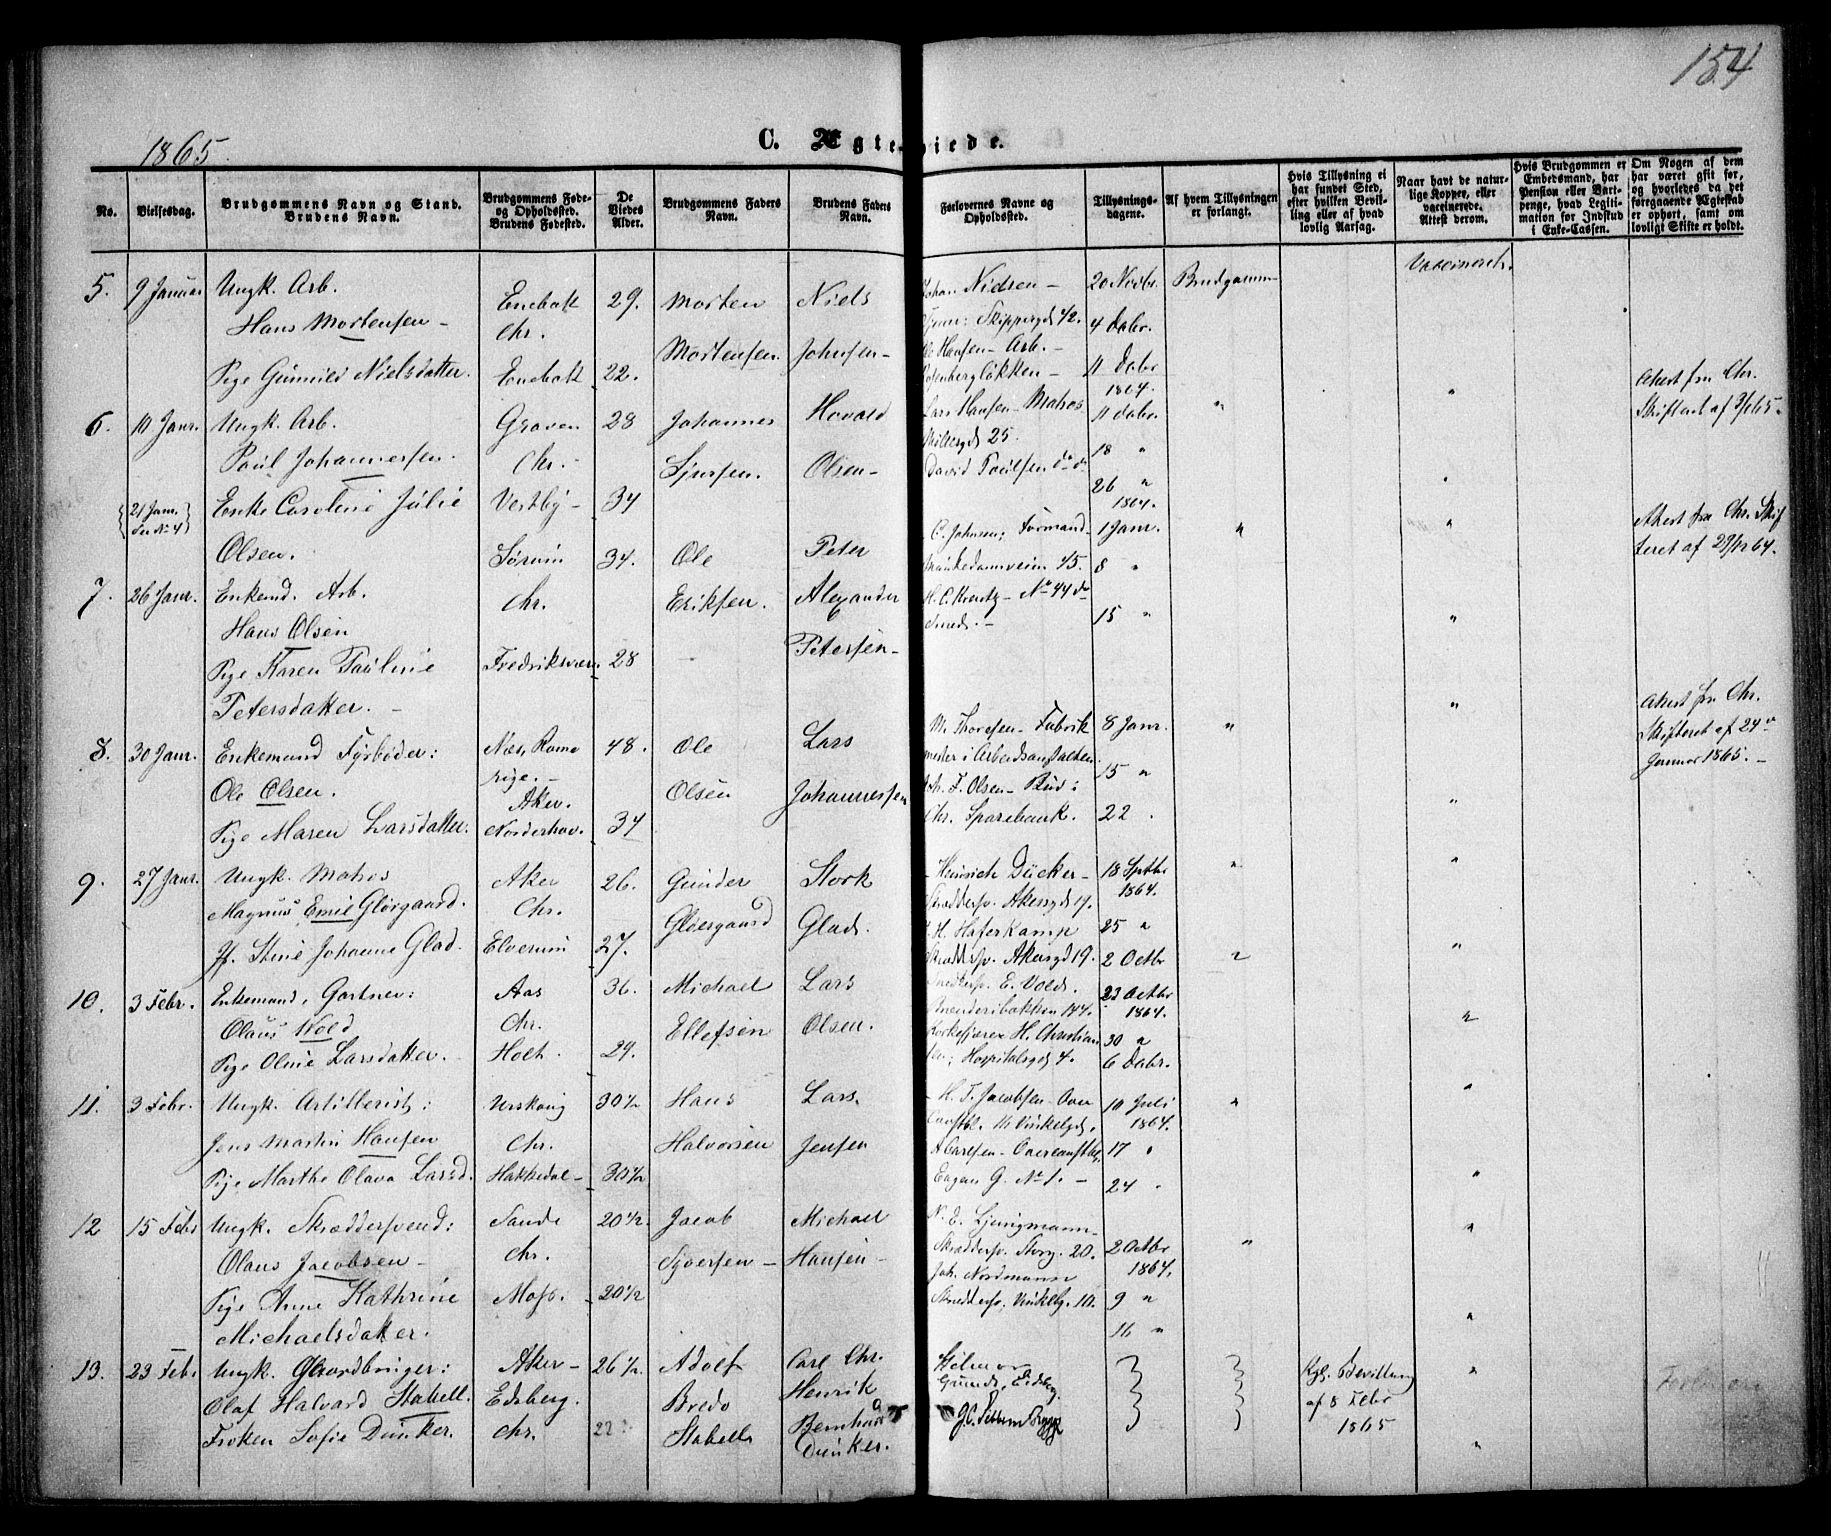 154
1865.
C. Ægteviede.
No.
Vielsesdag.
Brudgommens Navn og Stand.
Brudens Navn.
Brudgommens Føde-
og Opholdssted.
Brudens Fødested.
De
Viedes
Alder.
Brudgommens Faders
Navn.
Brudens Faders
Navn.
Forlovernes Navne og
Opholdssted.
Tillysnings-
dagene.
Af hvem Tillysningen
er forlangt.
Hvis Tillysning ei
har fundet Sted,
efter hvilken Bevil-
ling eller af hvad
lovlig Aarsag.
Naar havt de natur-
lige Kopper, eller
vaccinerede.
Attest derom.
Hvis Brudgommen er
Embedsmand, har
Pension eller Vart-
penge, hvad Legiti-
mation for Indskud
i Enke-Cassen.
Om Nogen af dem
har været gift før,
og hvorledes da det
foregaaende Ægteskab
er ophørt, samt om
lovligt Skifte er holdt.
5. 9 Januar Ungk. Arb.
Hans Mortensen -
Enebak
Chr.
29. Morten
Mortensen.
Niels
Johnsen -
Johan Nielsen -
Skippergd 42.
Hansen - Arb. -
Rosenbergløkken -
20 Novbr.
4 Decbr.
11 Decbr
1864.
Brudgommen
Vaccinerede.
Pige Gunnild Nielsdatter. Enebak 22.
"
6. 10 Janr. Ungk. Arb.
Paul Johannesen.
Graven
Chr. -
28 Johannes
Sjursen.
Hovald
Olsen -
Lars Hansen - Matros
25.
David Paulsen do do
11 Decbr.
18 "
26 "
1864.
"
Attest fra Chr.
Skifteret af 3/1 65.
Enke Caroline Julie
Olsen.
Vestby - 34
{21 Janr.
Se No 4}
Sørum 34.
7. 26 Janr. Enkemd. Arb.
Hans Olsen
Chr.
Ole
Eriksen.
Peter
Alexander
Petersen -
C. Johnsen; Formand
45.
H. C. Kreutz - No 44 do
Smed. -
1 Janr.
8 "
15 "
"
"
Attest fra Chr. Skif
teret af 29/12 64.
Pige Karen Pauline
Petersdatter. -
Fredriksværn 28
"
8. 30 Janr. Enkemand Fyrbøder:
Ole Olsen.
Næs, Rome
rige. -
Aker.
48. Ole
Olsen
Lars
Johannessen
M. Thoresen - Fabrik
mester i Arbeidsanstalten
F. Olsen - Bud:
Chr. Sparebank.
8 Janr.
15 "
22 "
"
"
Attest fra Chr.
Skifteret af 24de
Januar 1865. -
Pige Maren Larsdatter. Norderhov. 34
"
9. 27 Janr. Ungk. Matros
Magnus Emil Glørgaard.
Aker
Chr.
26. Gunder
Gløergaard
Stork
Glad.
- Heinrich Dücker -
Skræddersv. Akersgd 17.
H. Haferkamp
Skræddersv. Akersgd 19.
18 Septbr
1864.
25 "
2 Octbr
"
"
Jf. Stine Johanne Glad. Elverum 27.
"
10. 3 Febr. Enkemand, Gartner:
Olaus Wold
Aas
Chr.
36. Michael
Ellefsen
Lars
Olsen.
E. Vold.
144.
H. Christian
sen; Hospitalsgd 4.
23 Octbr
1864.
30 "
6 Decbr.
"
"
Pige Oline Larsdatter. Holt. 29.
"
11. 3 Febr. Ungk. Artillerist:
Jens Martin Hansen
Urskoug
Chr.
30½ Hans
Halvorsen
Lars.
Jensen
- H. T. Jacobsen - Over
Vinkelgd.
A Carlsen -
G. No 1. -
10 Juli
1864.
17 "
24 "
"
Pige Marthe Olava Larsd. Hakkedal - 30½
"
12 15 Febr Ungk. Skræddersvend:
Olaus Jacobsen -
Sande
Chr.
20½. Jacob
Syversen -
Michael
Hansen -
N. E. Ljungmann -
Skræddersv. Storg. 20.
Joh. Nordmann
Skreddersv. Vinkelg. 10.
2 Octbr
1864.
9 "
16 "
"
"
Pige Anne Kathrine
Michaelsdatter.
Moss. 20½
"
13. 23 Febr Ungk. Gaardbruger:
Olaf Halvard Stabell.
Aker -
Edsberg.
26½. Adolf
Bredo
Stabell
Carl Chr.
Henrik
Bernhard
Dunker.
Gunds, Eidsbg.
Kgl. Bevilling
af 8 Febr
1865
"
Frøken Sofie Dunker. Chr. 22
"